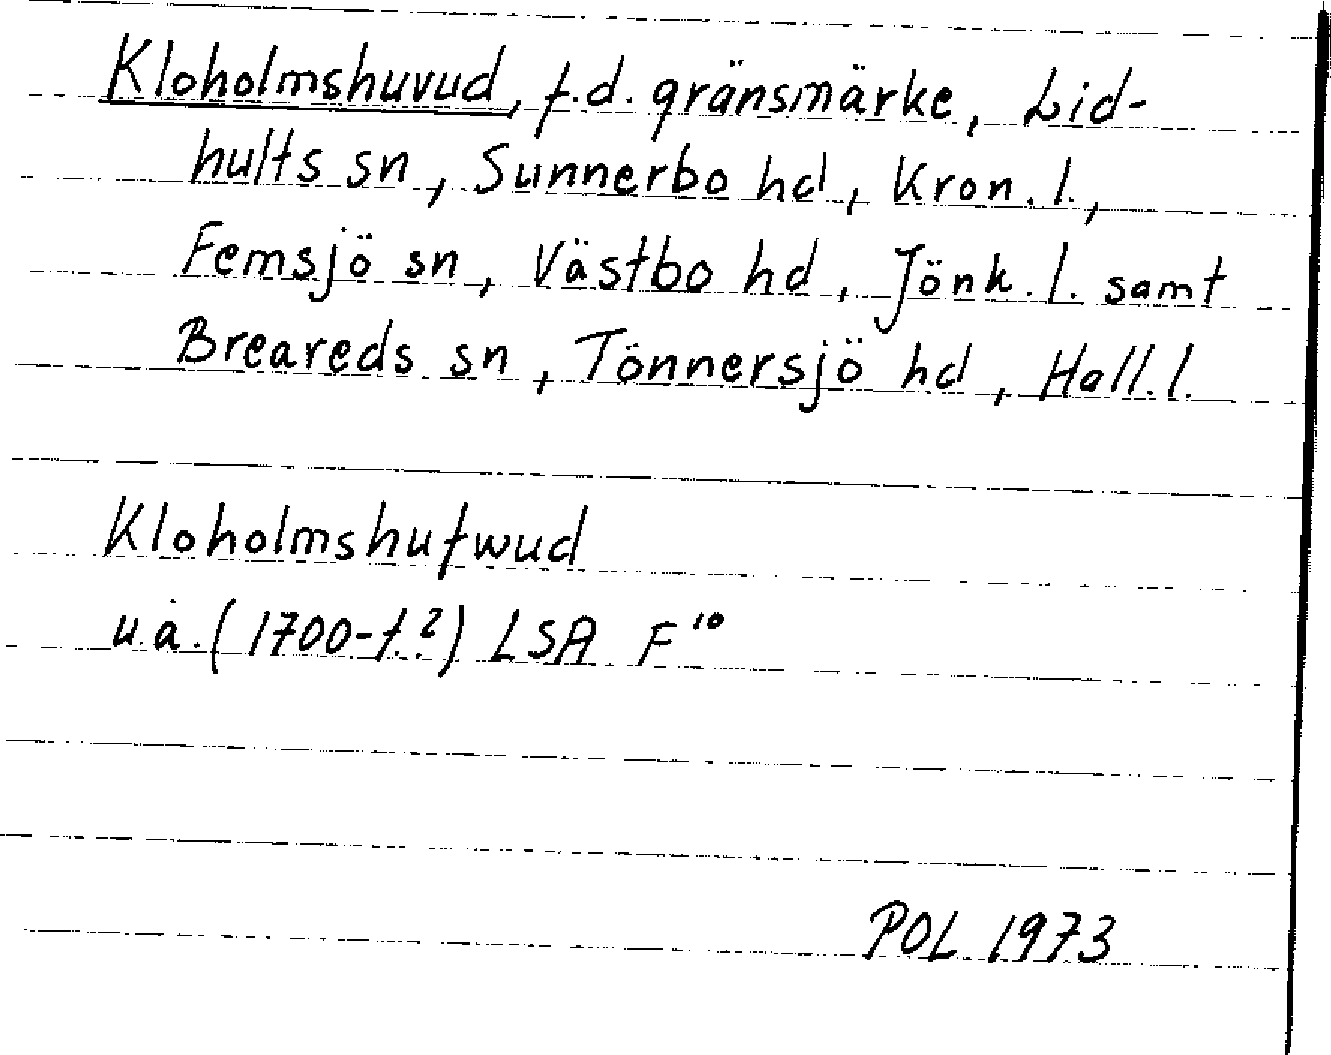 Kloholmshuvud, f.d. gränsmärke, Lid-
hults sn, Sunnerbo hd, Kron. l.,
Femsjö sn, Västbo hd, Jönk. l. samt
Breareds sn, Tönnersjö hd, Hall. l.
Kloholmshufwud
u.å. (1700-t.?) LSA F¹⁰
POL 1973